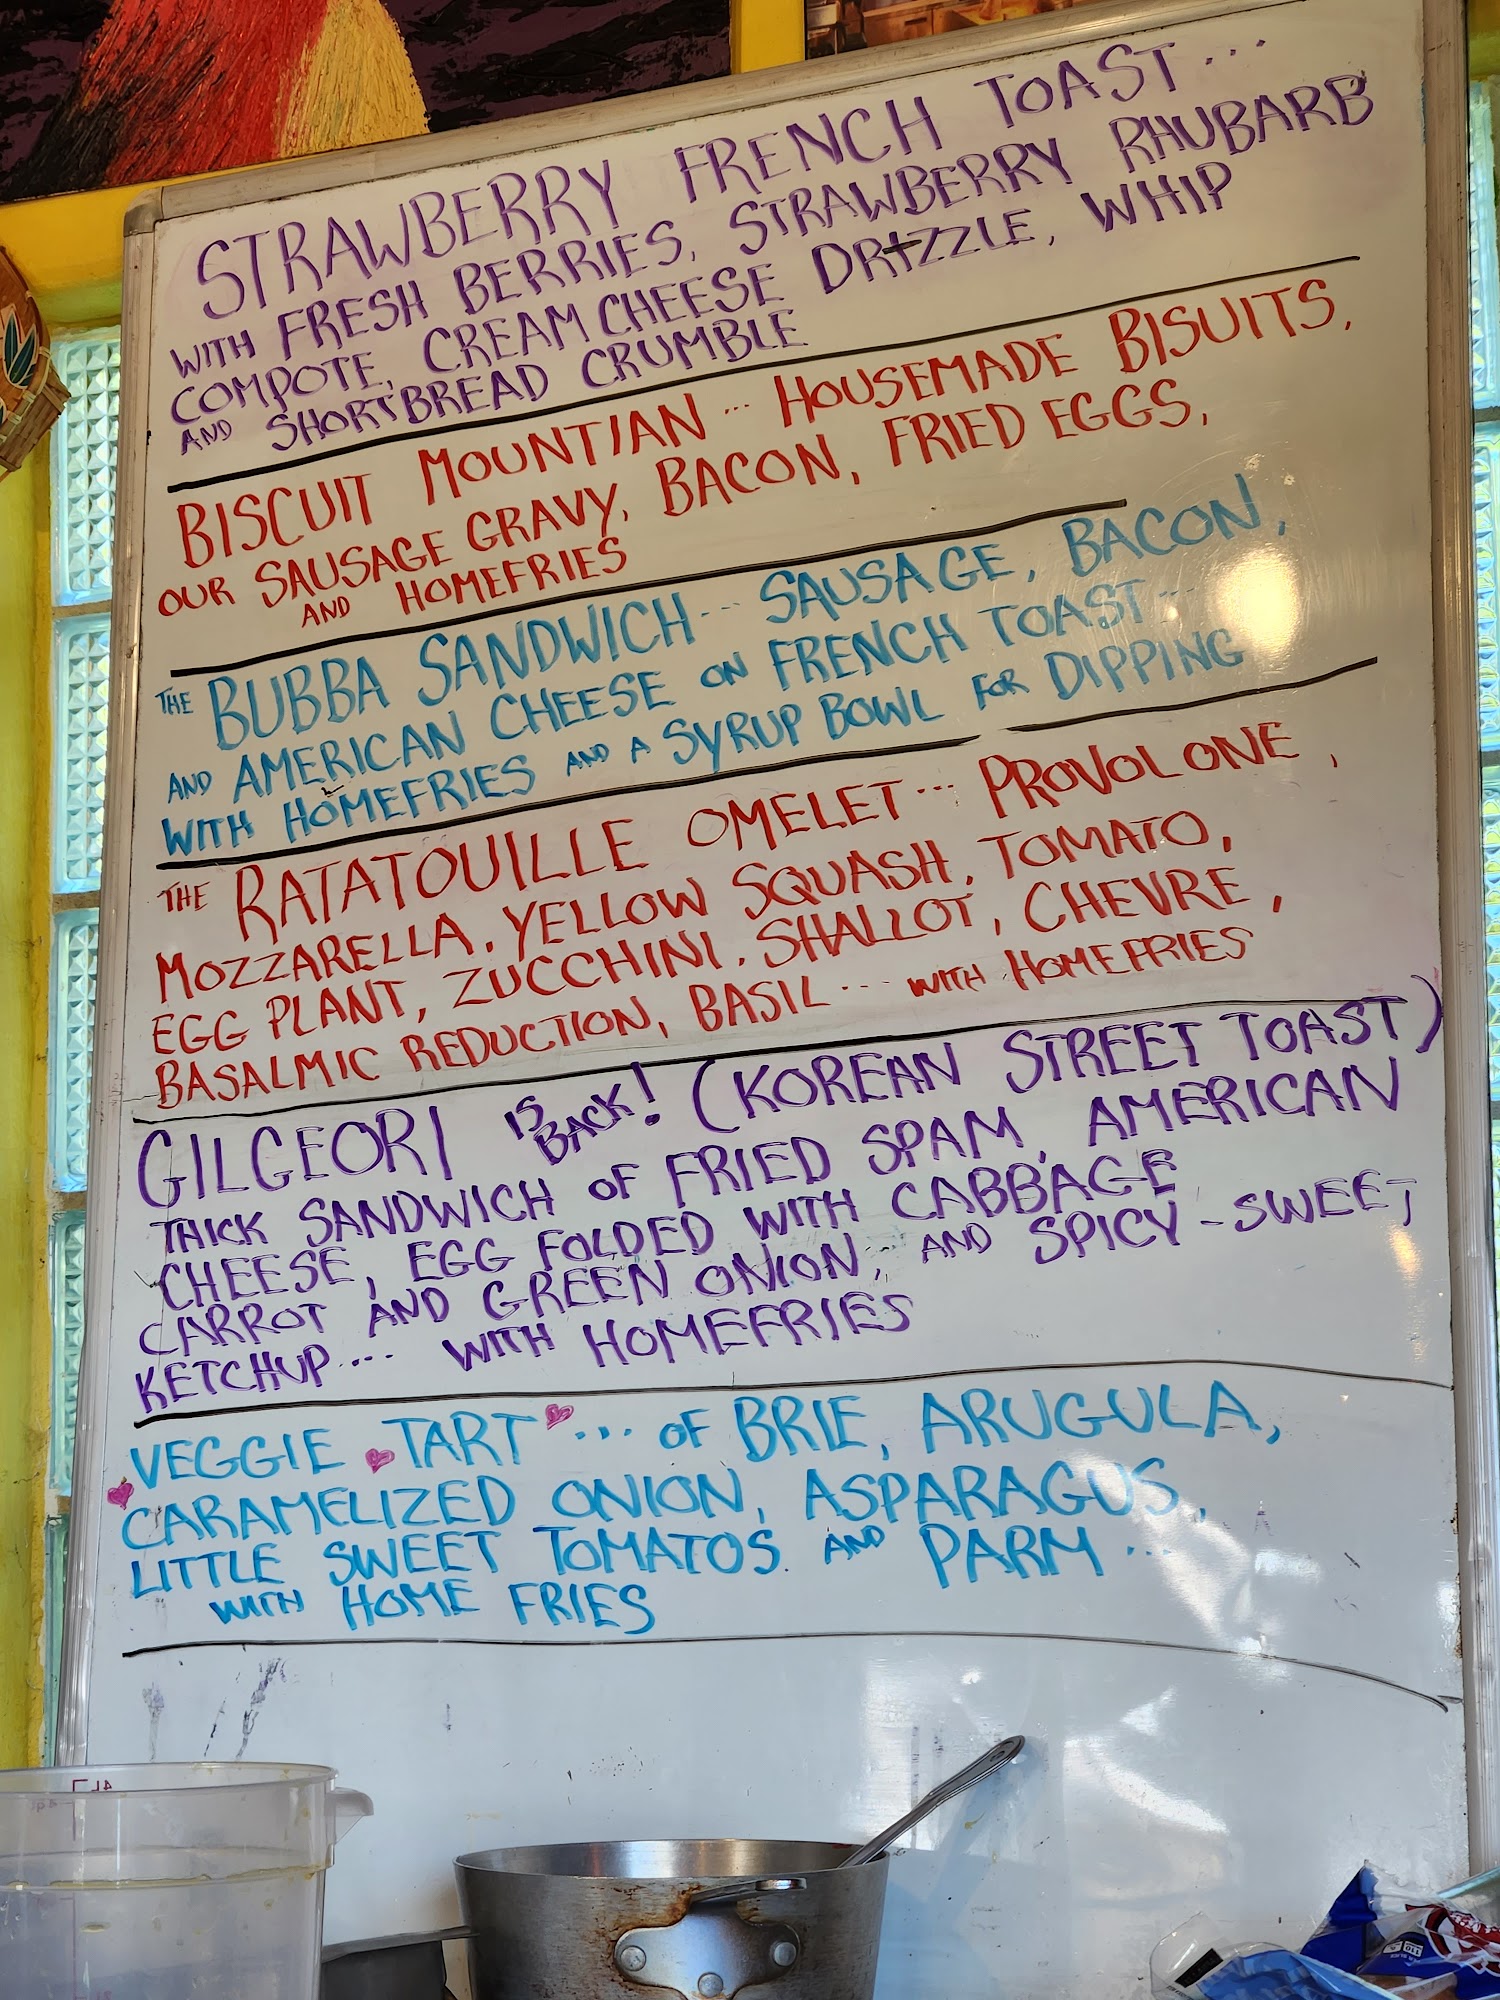 STRAWBERRY FRENCH TOAST...
WITH FRESH BERRIES, STRAWBERRY RHUBARB
COMPOTE, CREAM CHEESE DRIZZLE, WHIP
AND SHORTBREAD CRUMBLE
BISCUIT MOUNTIAN... HOUSEMADE BISUITS,
OUR SAUSAGE GRAVY, BACON, FRIED EGGS,
AND HOMEFRIES
THE BUBBA SANDWICH... SAUSAGE, BACON,
AND AMERICAN CHEESE ON FRENCH TOAST...
WITH HOMEFRIES AND A SYRUP BOWL FOR DIPPING
THE RATATOUILLE OMELET... PROVOLONE,
MOZZARELLA, YELLOW SQUASH, TOMATO,
EGG PLANT, ZUCCHINI, SHALLOT, CHEVRE,
BASALMIC REDUCTION, BASIL... WITH HOMEFRIES
GILGEORI IS BACK! (KOREAN STREET TOAST)
THICK SANDWICH OF FRIED SPAM, AMERICAN
CHEESE, EGG FOLDED WITH CABBAGE
CARROT AND GREEN ONION, AND SPICY-SWEET
KETCHUP... WITH HOMEFRIES
VEGGIE TART... OF BRIE, ARUGULA,
CARAMELIZED ONION, ASPARAGUS,
LITTLE SWEET TOMATOS AND PARM...
WITH HOME FRIES